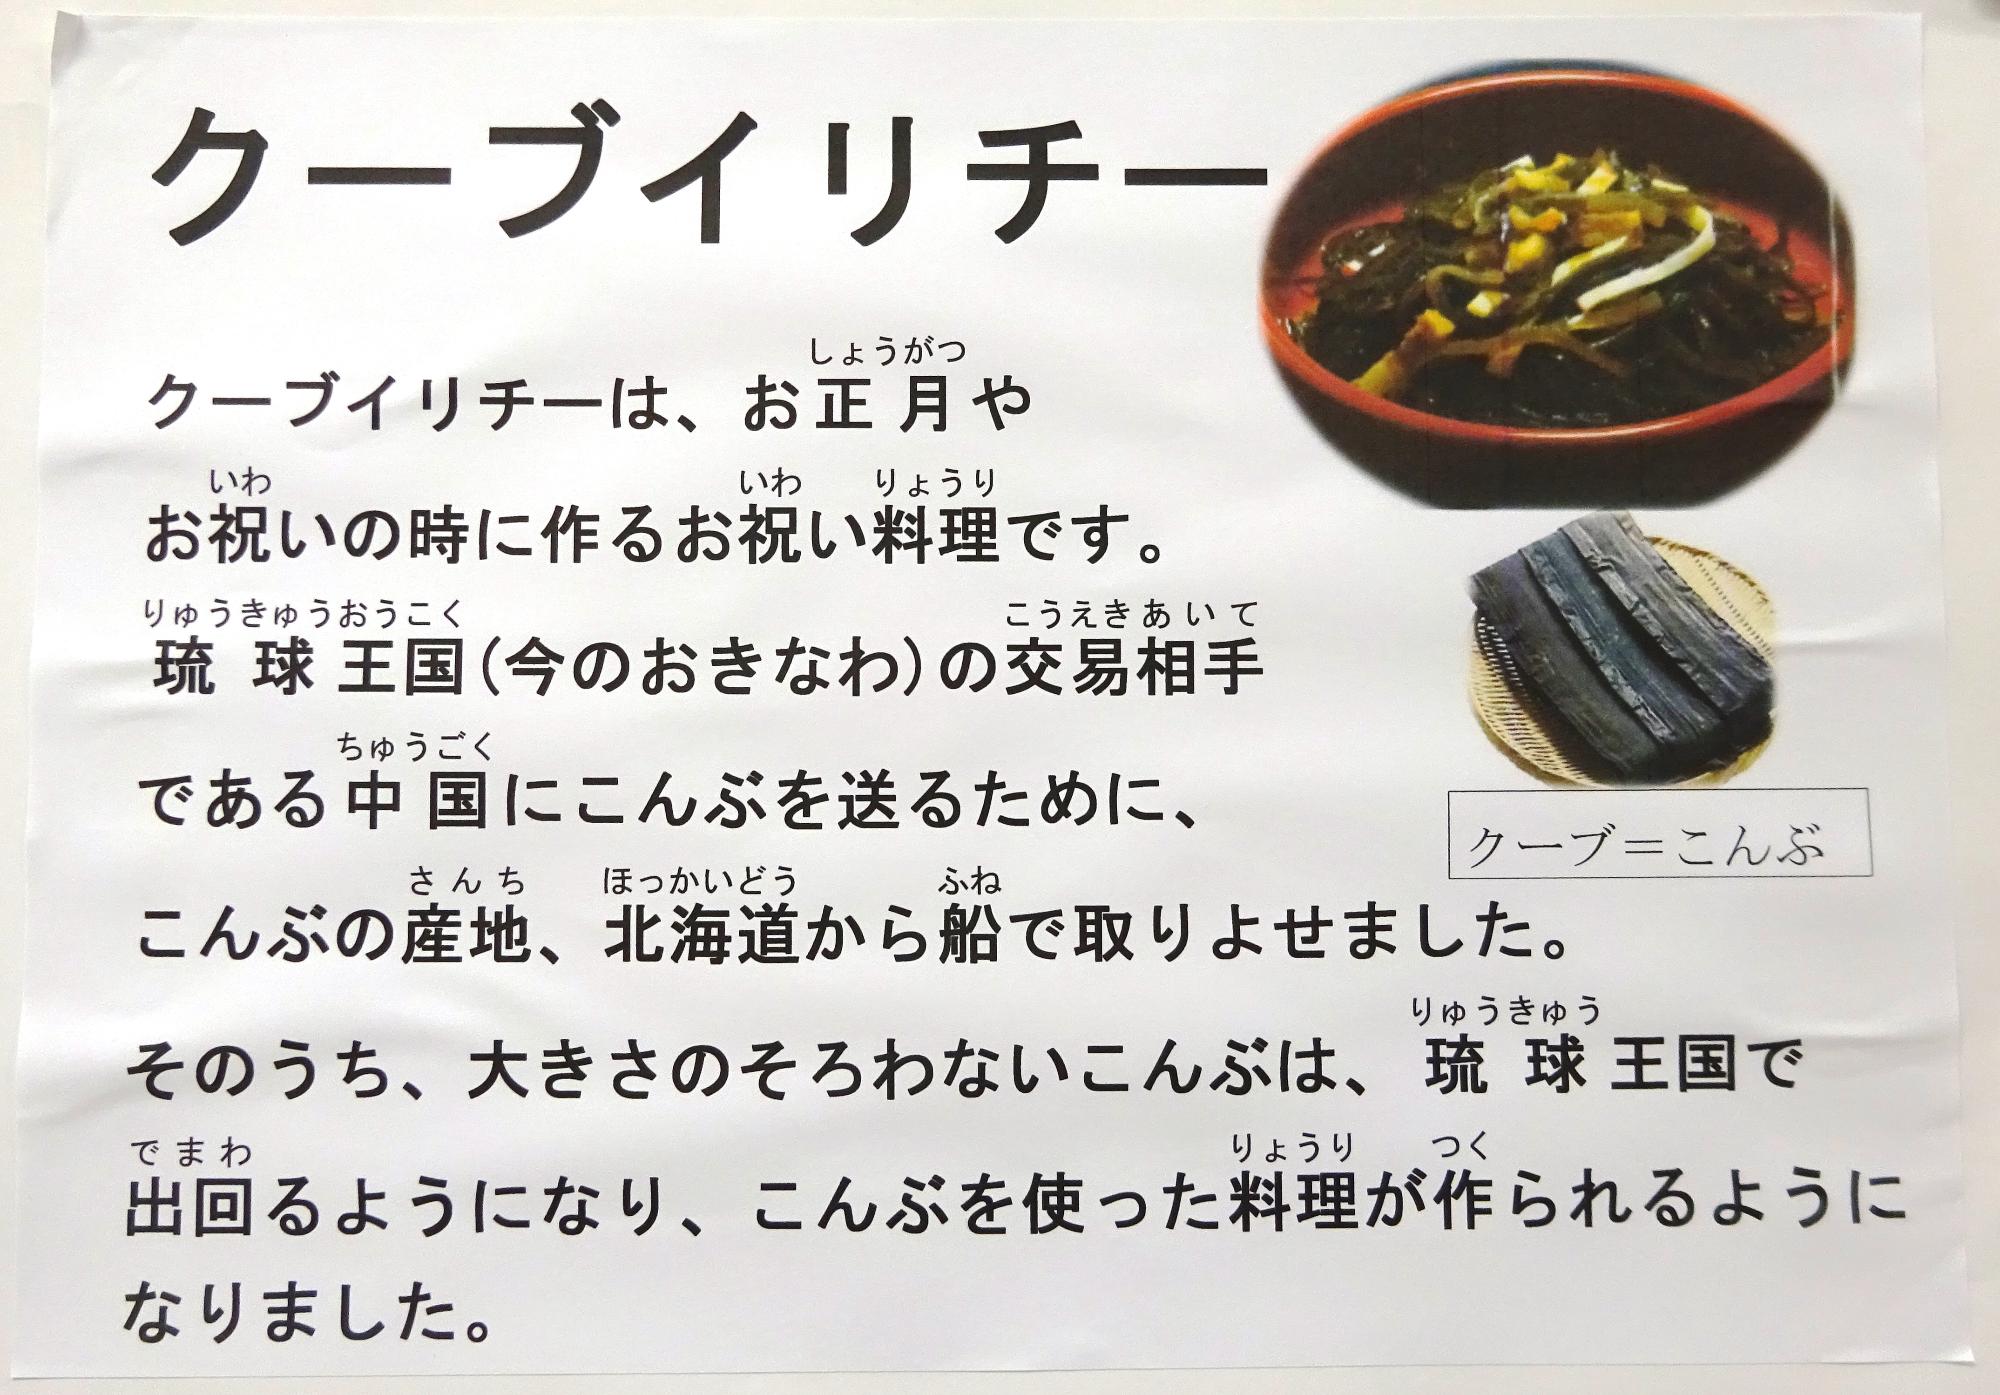 クーブイリチー
しょうがつ
クーブイリチーは、お正月や
いわ いわ りょうり
お祝いの時に作るお祝い料理です。
りゅうきゅうおうこく こうえきあいて
琉球王国(今のおきなわ)の交易相手
ちゅうごく
である中国にこんぶを送るために、
クーブ＝こんぶ
さんち ほっかいどう ふね
こんぶの産地、北海道から船で取りよせました。
りゅうきゅう
そのうち、大きさのそろわないこんぶは、琉球王国で
でまわ りょうり つく
出回るようになり、こんぶを使った料理が作られるように
なりました。